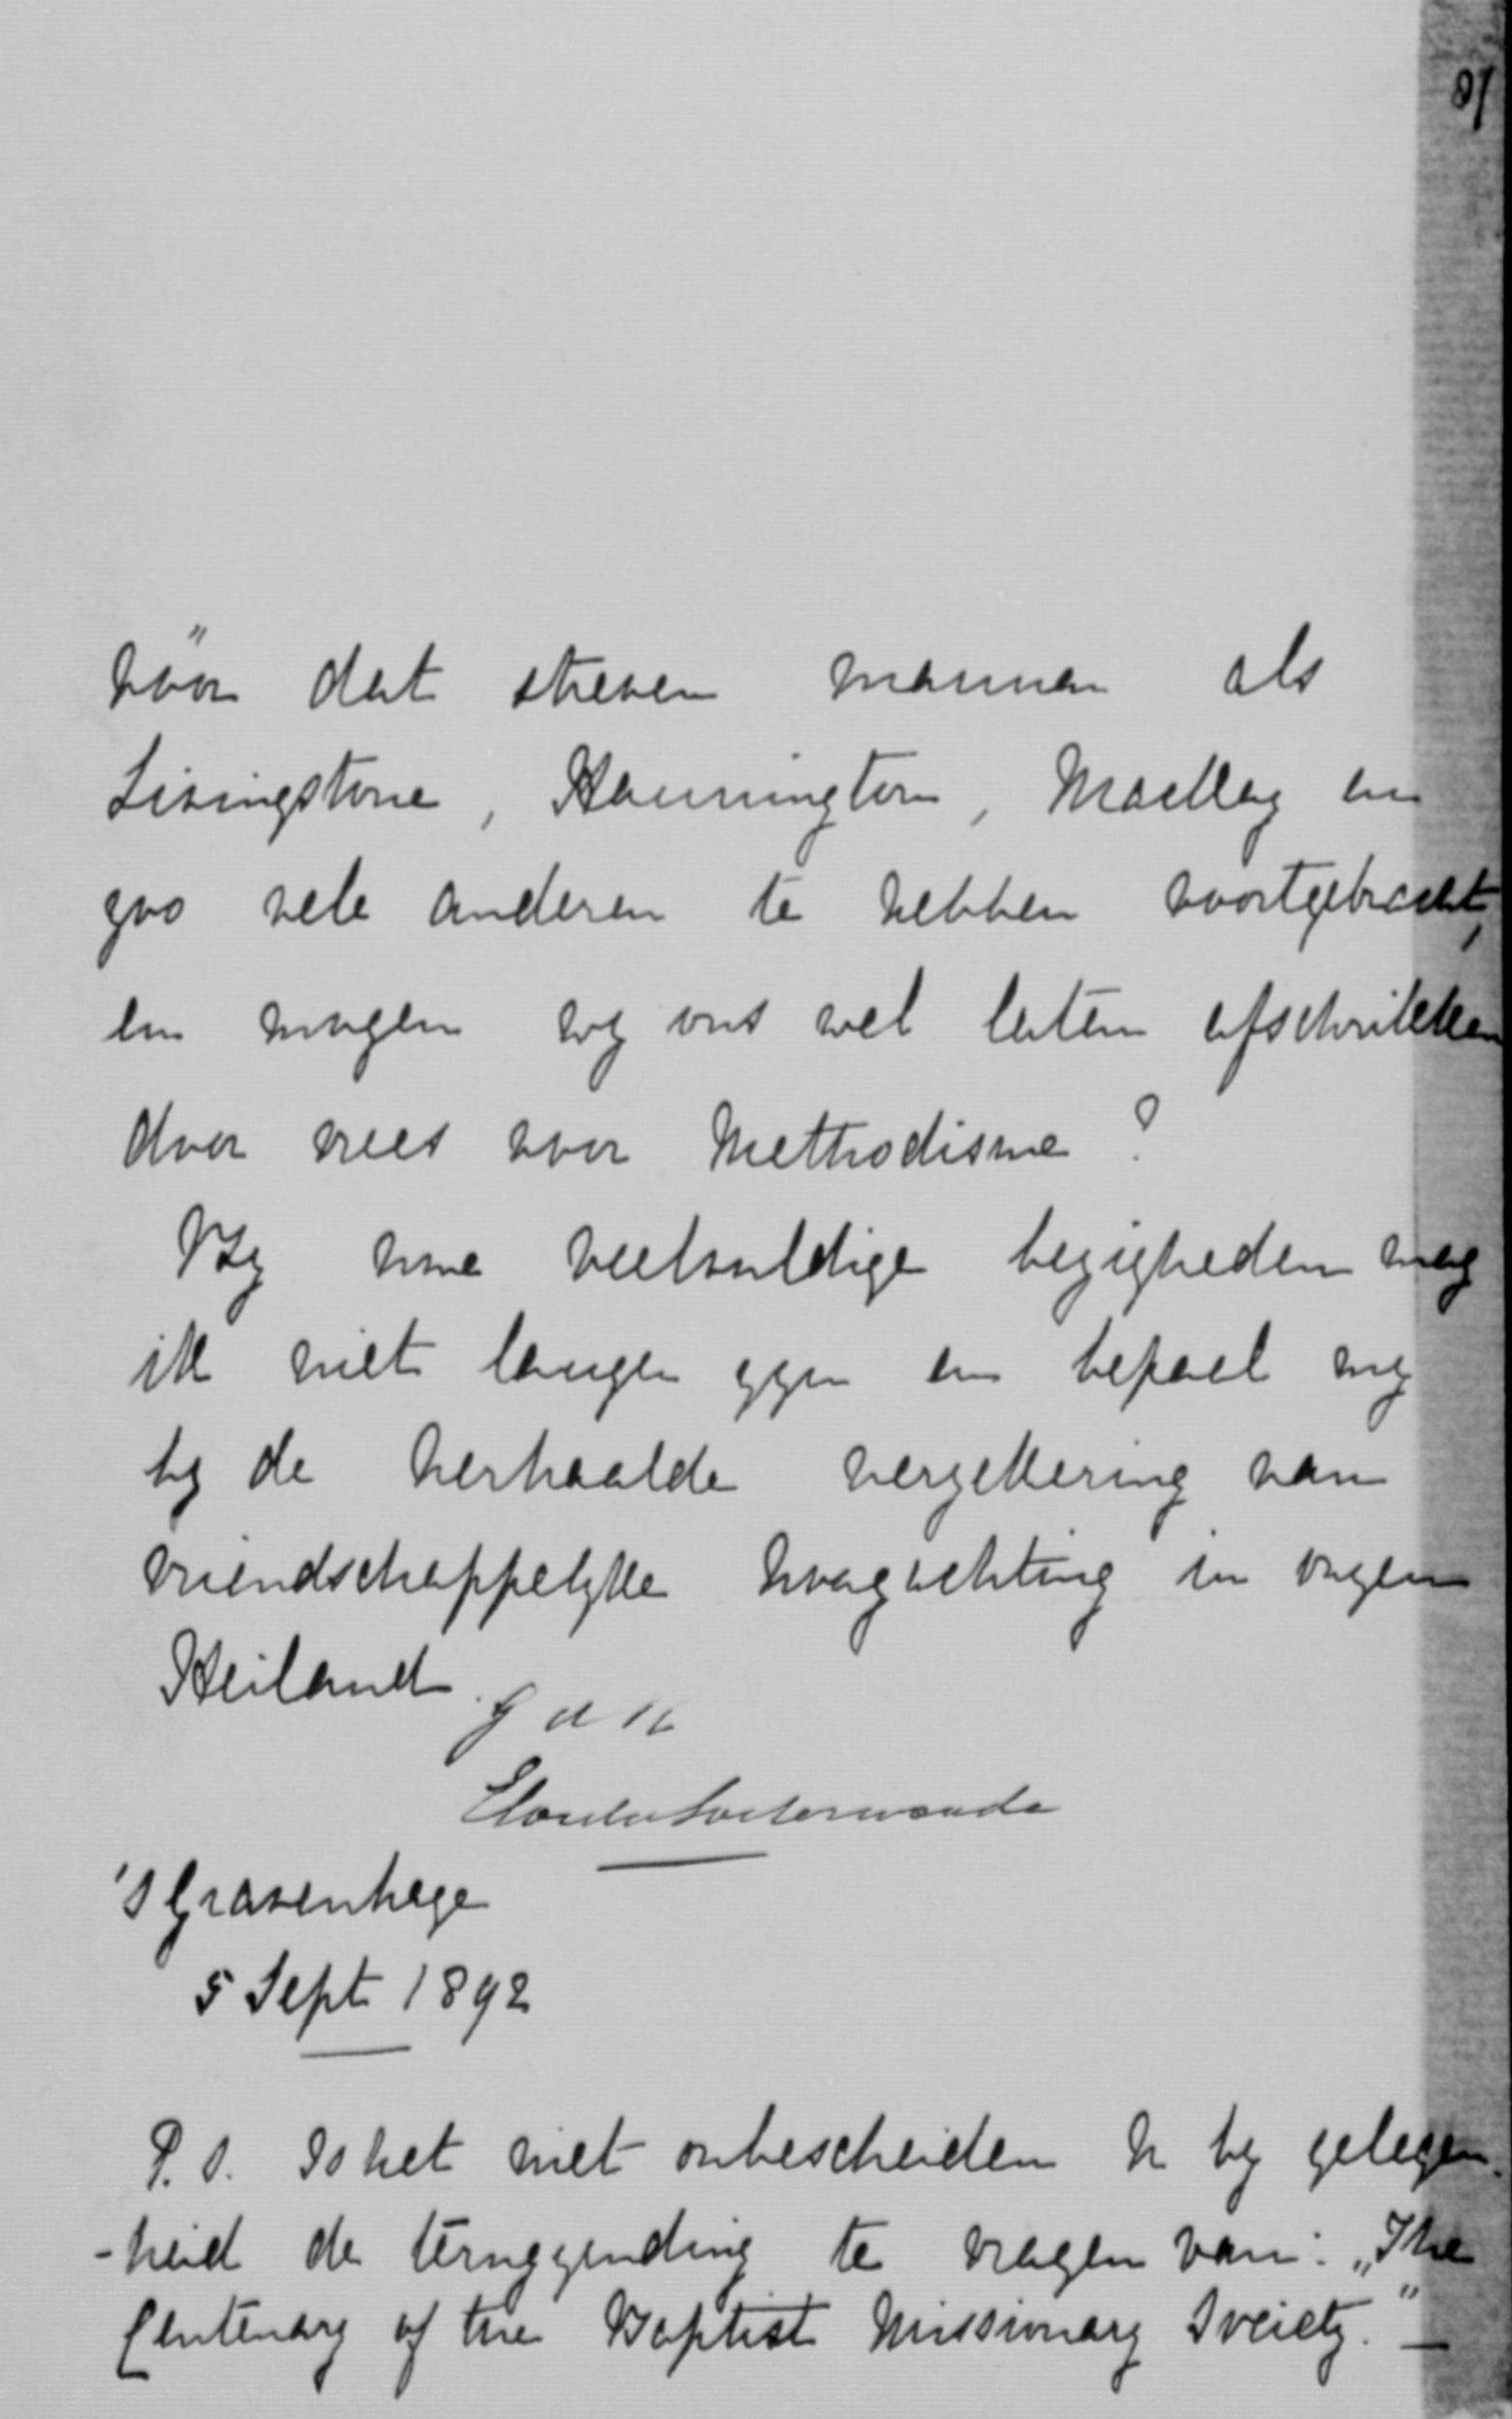 voor" dat streven mannen als
Livingstone, Hannington, Mackay en
zoo vele anderen te hebben voortgebracht,
en mogen wy ons wel laten afschrikken
door vrees voor Methodisme?
By uwe veelvuldige bezigheden mag
ik niet langer zyn en bepaal my
by de herhaalde verzekering van
vriendschappelyke hoogachting in onzen
Heiland.
's Gravenhage
5 Sept 1892
P.S. Is het niet onbescheiden U by gelegen-
-heid de terugzending te vragen van: „The
Centenary of the Baptist Missionary Society." —